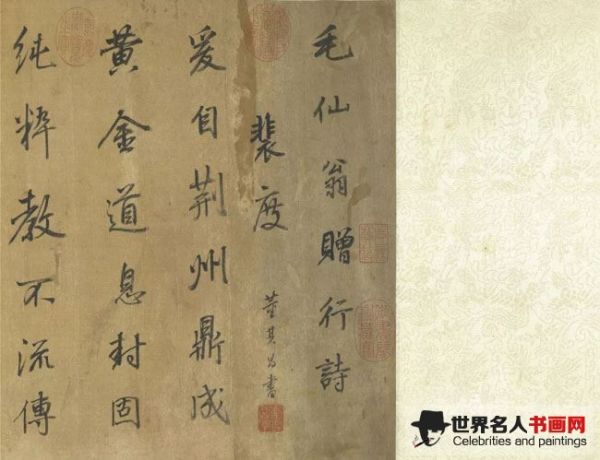 毛仙翁贈行詩
裴度
董其昌書
爰自荆州鼎成
黃金道息封固
純粹教不流傳
世界名人书画网
Celebrities and paintings